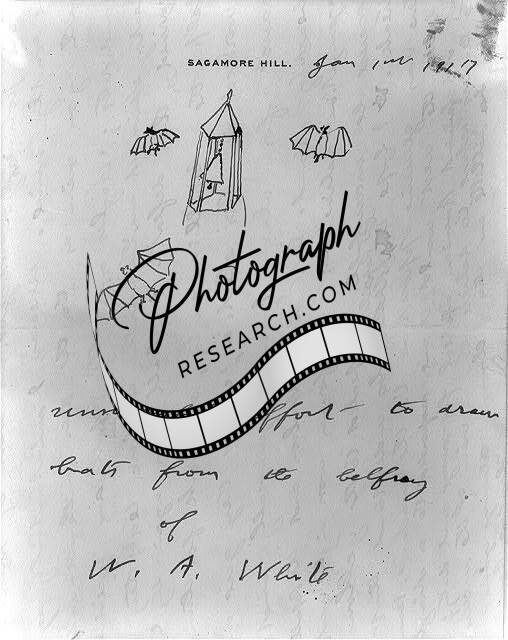 SAGAMORE HILL. Jan 1st 1917
Photograph
RESEARCH.COM
effort to draw
bats from the belfray
of
W. A. White